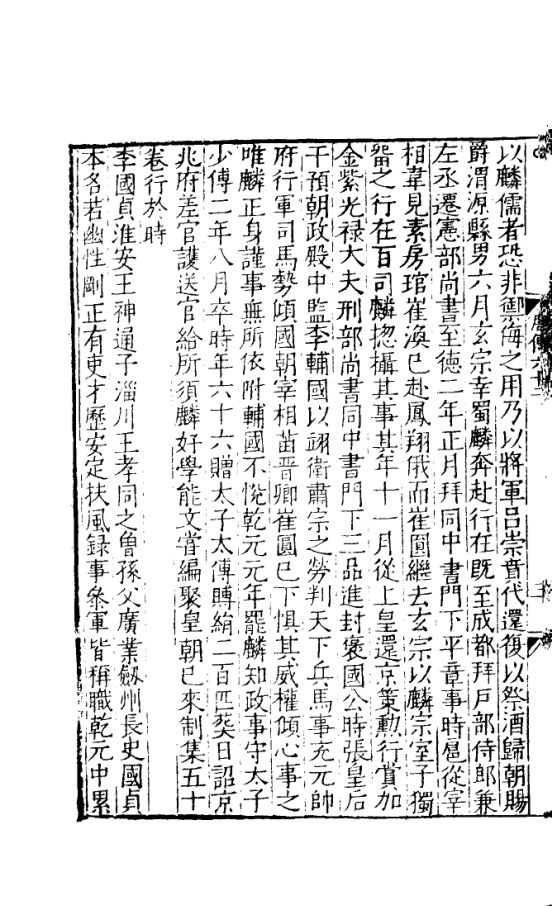 以麟儒者恐非禦侮之用乃以將軍呂崇賁代還復以祭酒歸朝賜
爵渭源縣男六月玄宗幸蜀麟奔赴行在既至成都拜戶部侍郎兼
左丞遷憲部尚書至德二年正月拜同中書門下平章事時扈從宰
相韋見素房琯崔渙已赴鳳翔俄而崔圓繼去玄宗以麟宗室子獨
畱之行在百司麟揔攝其事其年十一月從上皇還京策勳行賞加
金紫光禄大夫刑部尚書同中書門下三品進封褒國公時張皇后
干預朝政殿中監李輔國以翊衛肅宗之勞判天下兵馬事充元帥
府行軍司馬勢傾國朝宰相苗晉卿崔圓已下懼其威權傾心事之
唯麟正身謹事無所依附輔國不悅乾元元年罷麟知政事守太子
少傅二年八月卒時年六十六贈太子太傅賻絹二百匹葬日詔京
兆府差官護送官給所須麟好學能文嘗編聚皇朝已來制集五十
卷行於時
李國貞淮安王神通子淄川王孝同之曾孫父廣業劔州長史國貞
本名若幽性剛正有吏才歷安定扶風録事叅軍皆稱職乾元中累